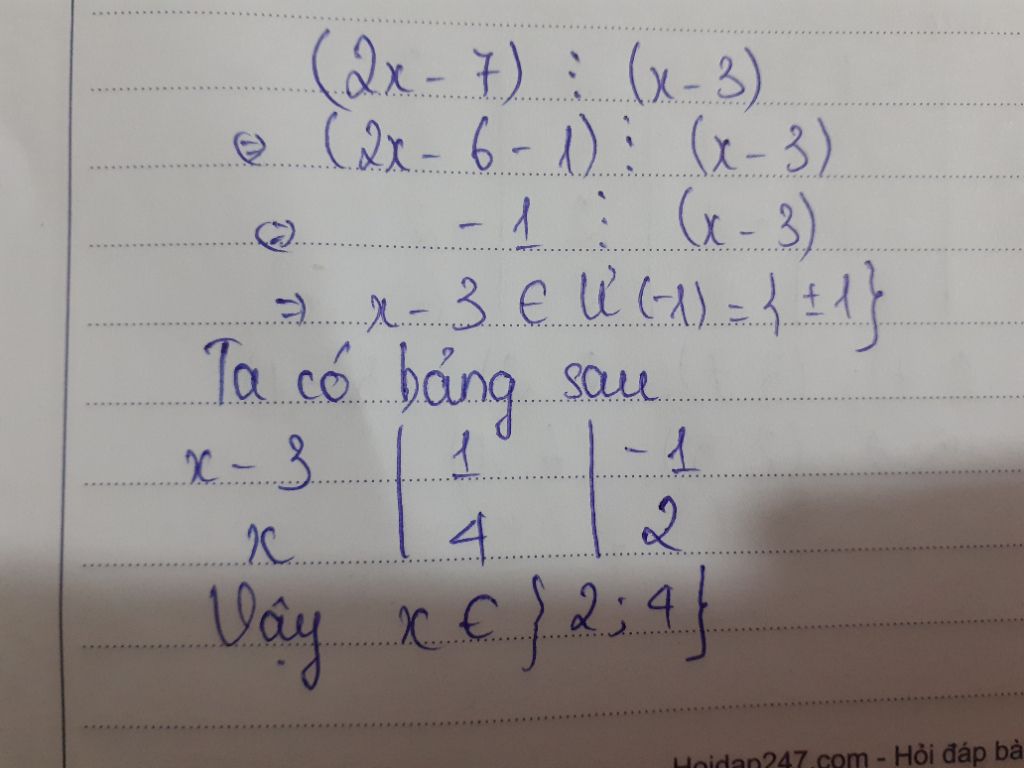 (2x - 7) ⋮ (x - 3)
⇔ (2x - 6 - 1) ⋮ (x - 3)
⇔ - 1 ⋮ (x - 3)
⇒ x - 3 ∈ Ư (-1) = { ± 1}
Ta có bảng sau
x - 3 | 1 | - 1
x | 4 | 2
Vậy x ∈ } 2 ; 4 }
Hoidap247.com - Hỏi đáp bà